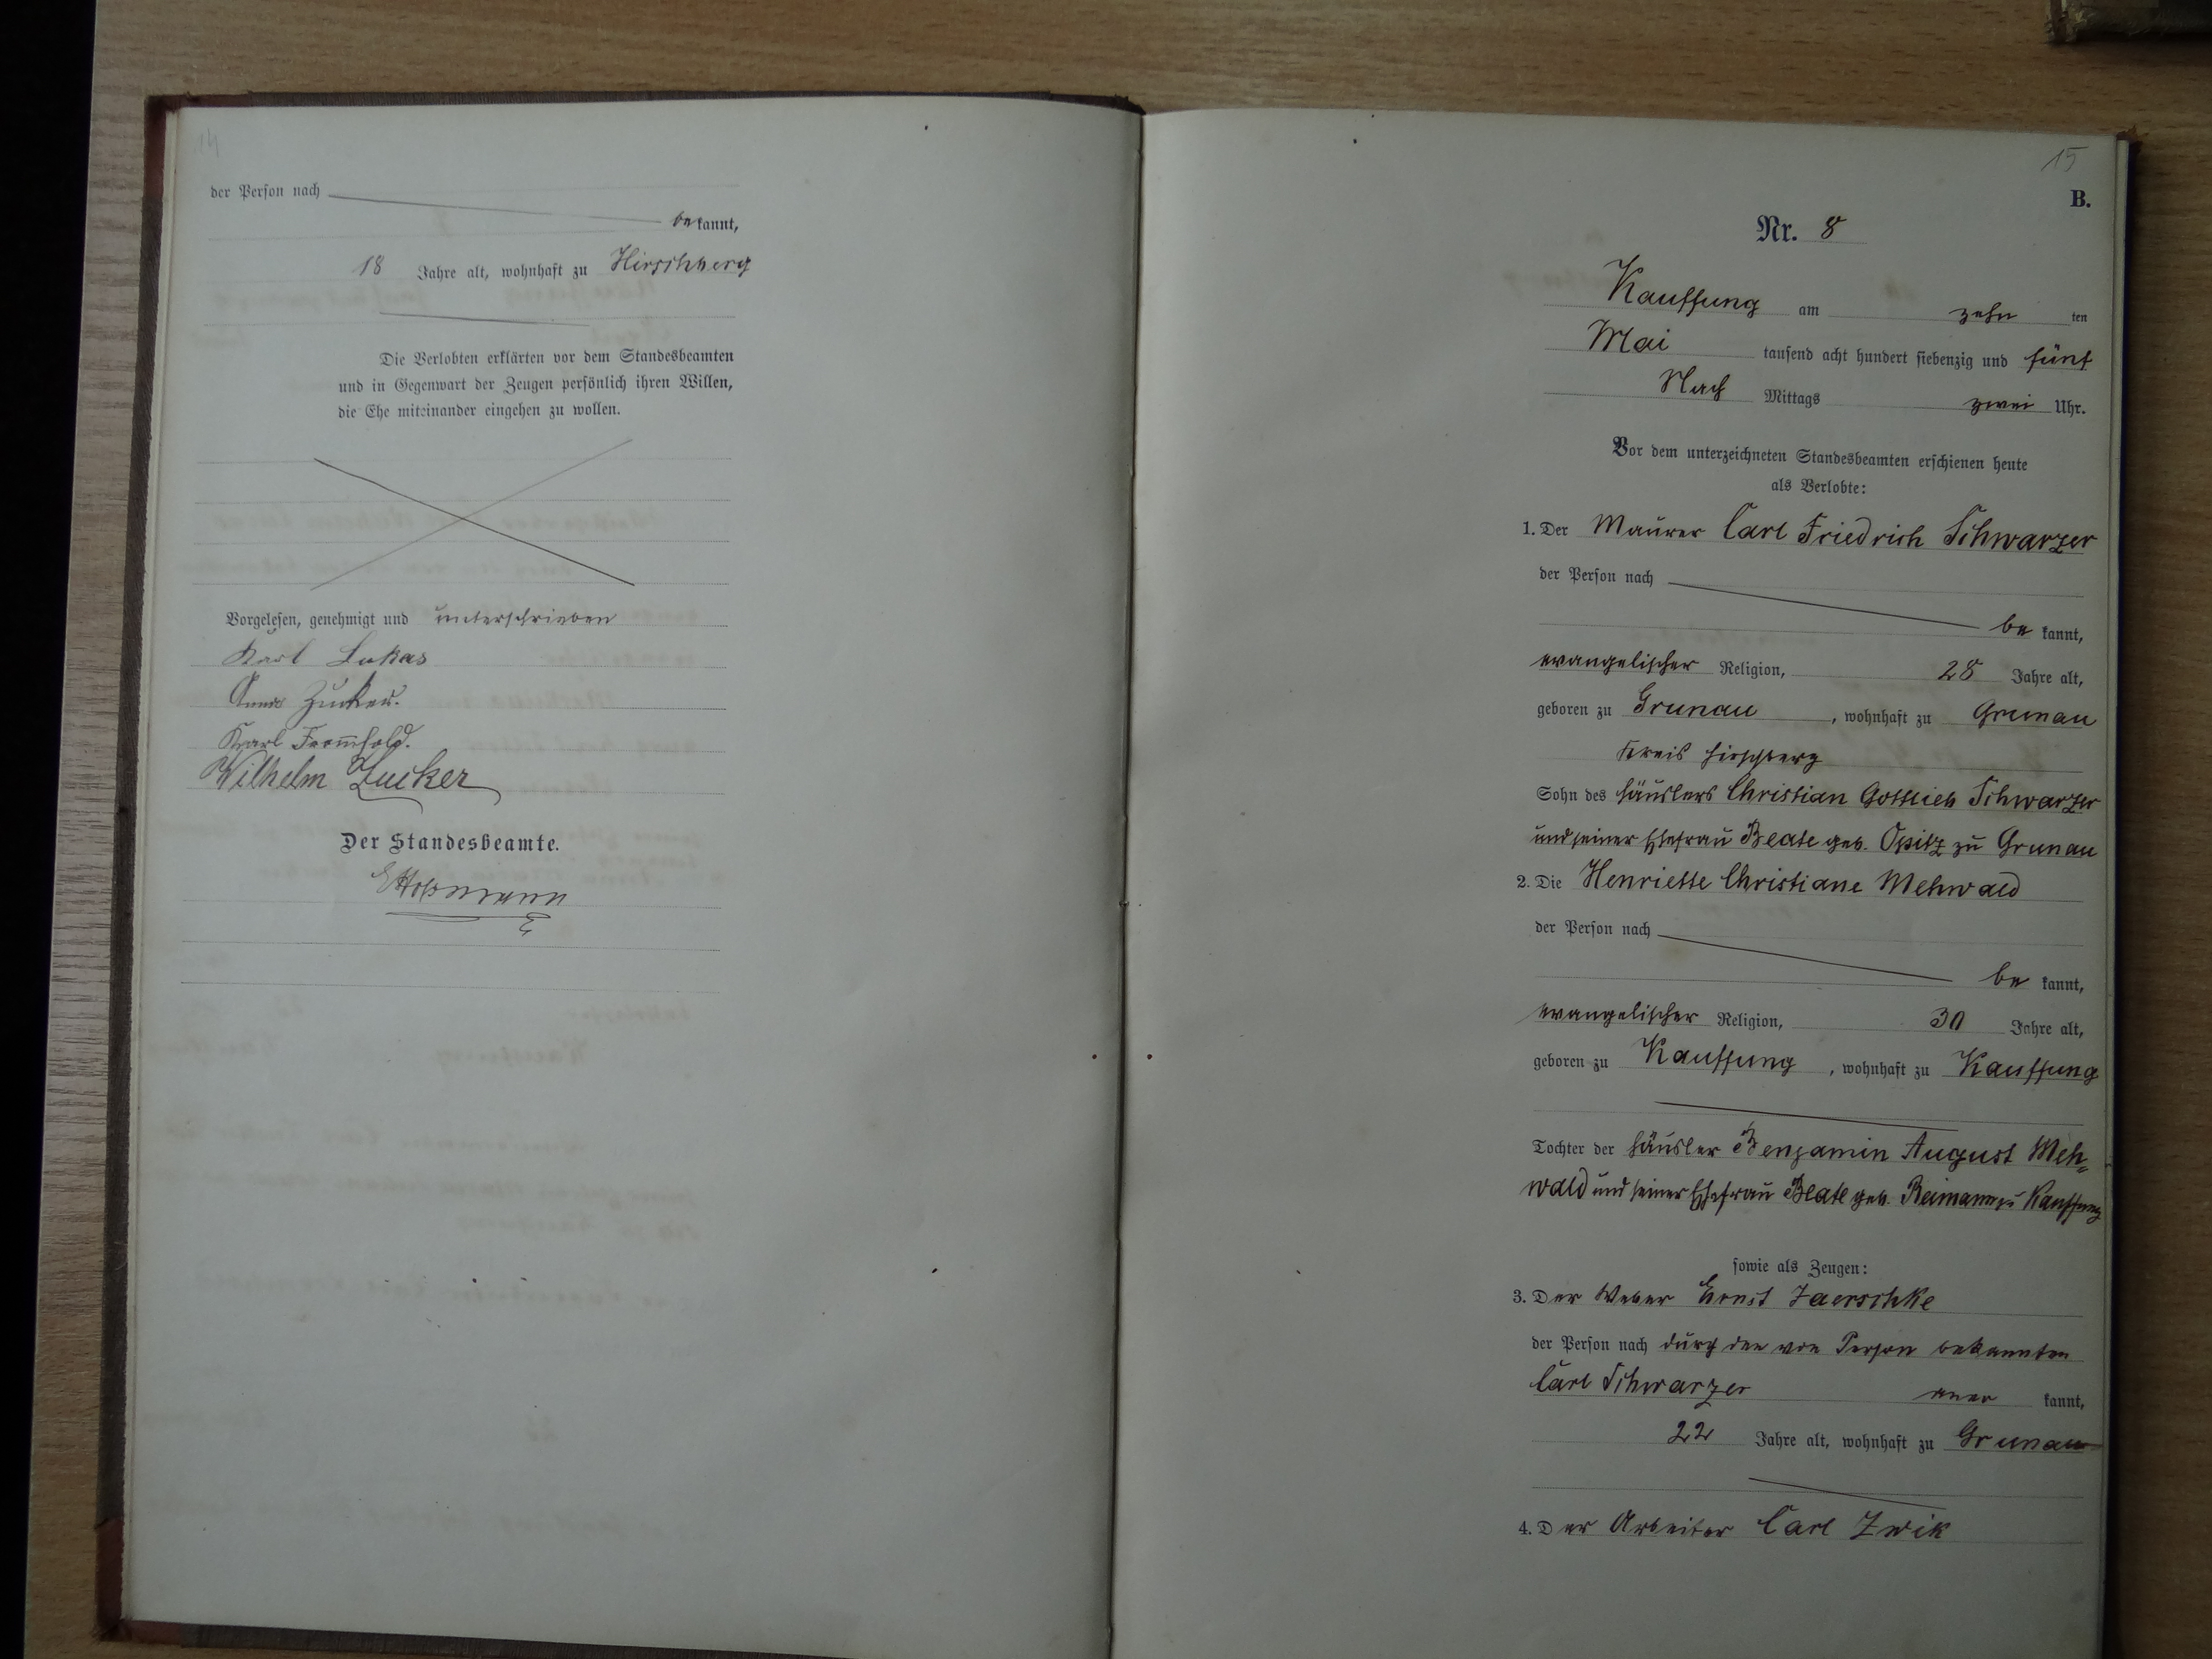 14
der Person nach
bekannt,
18 Jahre alt, wohnhaft zu Hirschberg
Die Verlobten erklärten vor dem Standesbeamten
und in Gegenwart der Zeugen persönlich ihren Willen,
die Ehe miteinander eingehen zu wollen.
Vorgelesen, genehmigt und unterschrieben
Karl Lukas
Anna Zucker.
Karl Frommhold.
Wilhelm Zucker
Der Standesbeamte.
15
B.
Nr. 8
Kauffung am zehn ten
Mai tausend acht hundert siebenzig und fünf
Nach Mittags zwei Uhr.
Vor dem unterzeichneten Standesbeamten erschienen heute
als Verlobte:
1. Der Maurer Carl Friedrich Schwarzer
der Person nach
be kannt,
evangelischer Religion, 28 Jahre alt,
geboren zu Grunau, wohnhaft zu Grunau
Kreis Hirschberg
Sohn des Häuslers Christian Gottlieb Schwarzer
und seiner Ehefrau Beate geb. Opitz zu Grunau
2. Die Henriette Christiane Mehwald
der Person nach
be kannt,
evangelischer Religion, 30 Jahre alt,
geboren zu Kauffung, wohnhaft zu Kauffung
Tochter der Häusler Benjamin August Meh=
wald und seiner Ehefrau Beate geb. Reimann zu Kauffung
sowie als Zeugen:
3. Der Weber Ernst Jaerschke
der Person nach durch den von Person bekannten
Carl Schwarzer aner kannt,
22 Jahre alt, wohnhaft zu Grunau
4. Der Arbeiter Carl Zwik